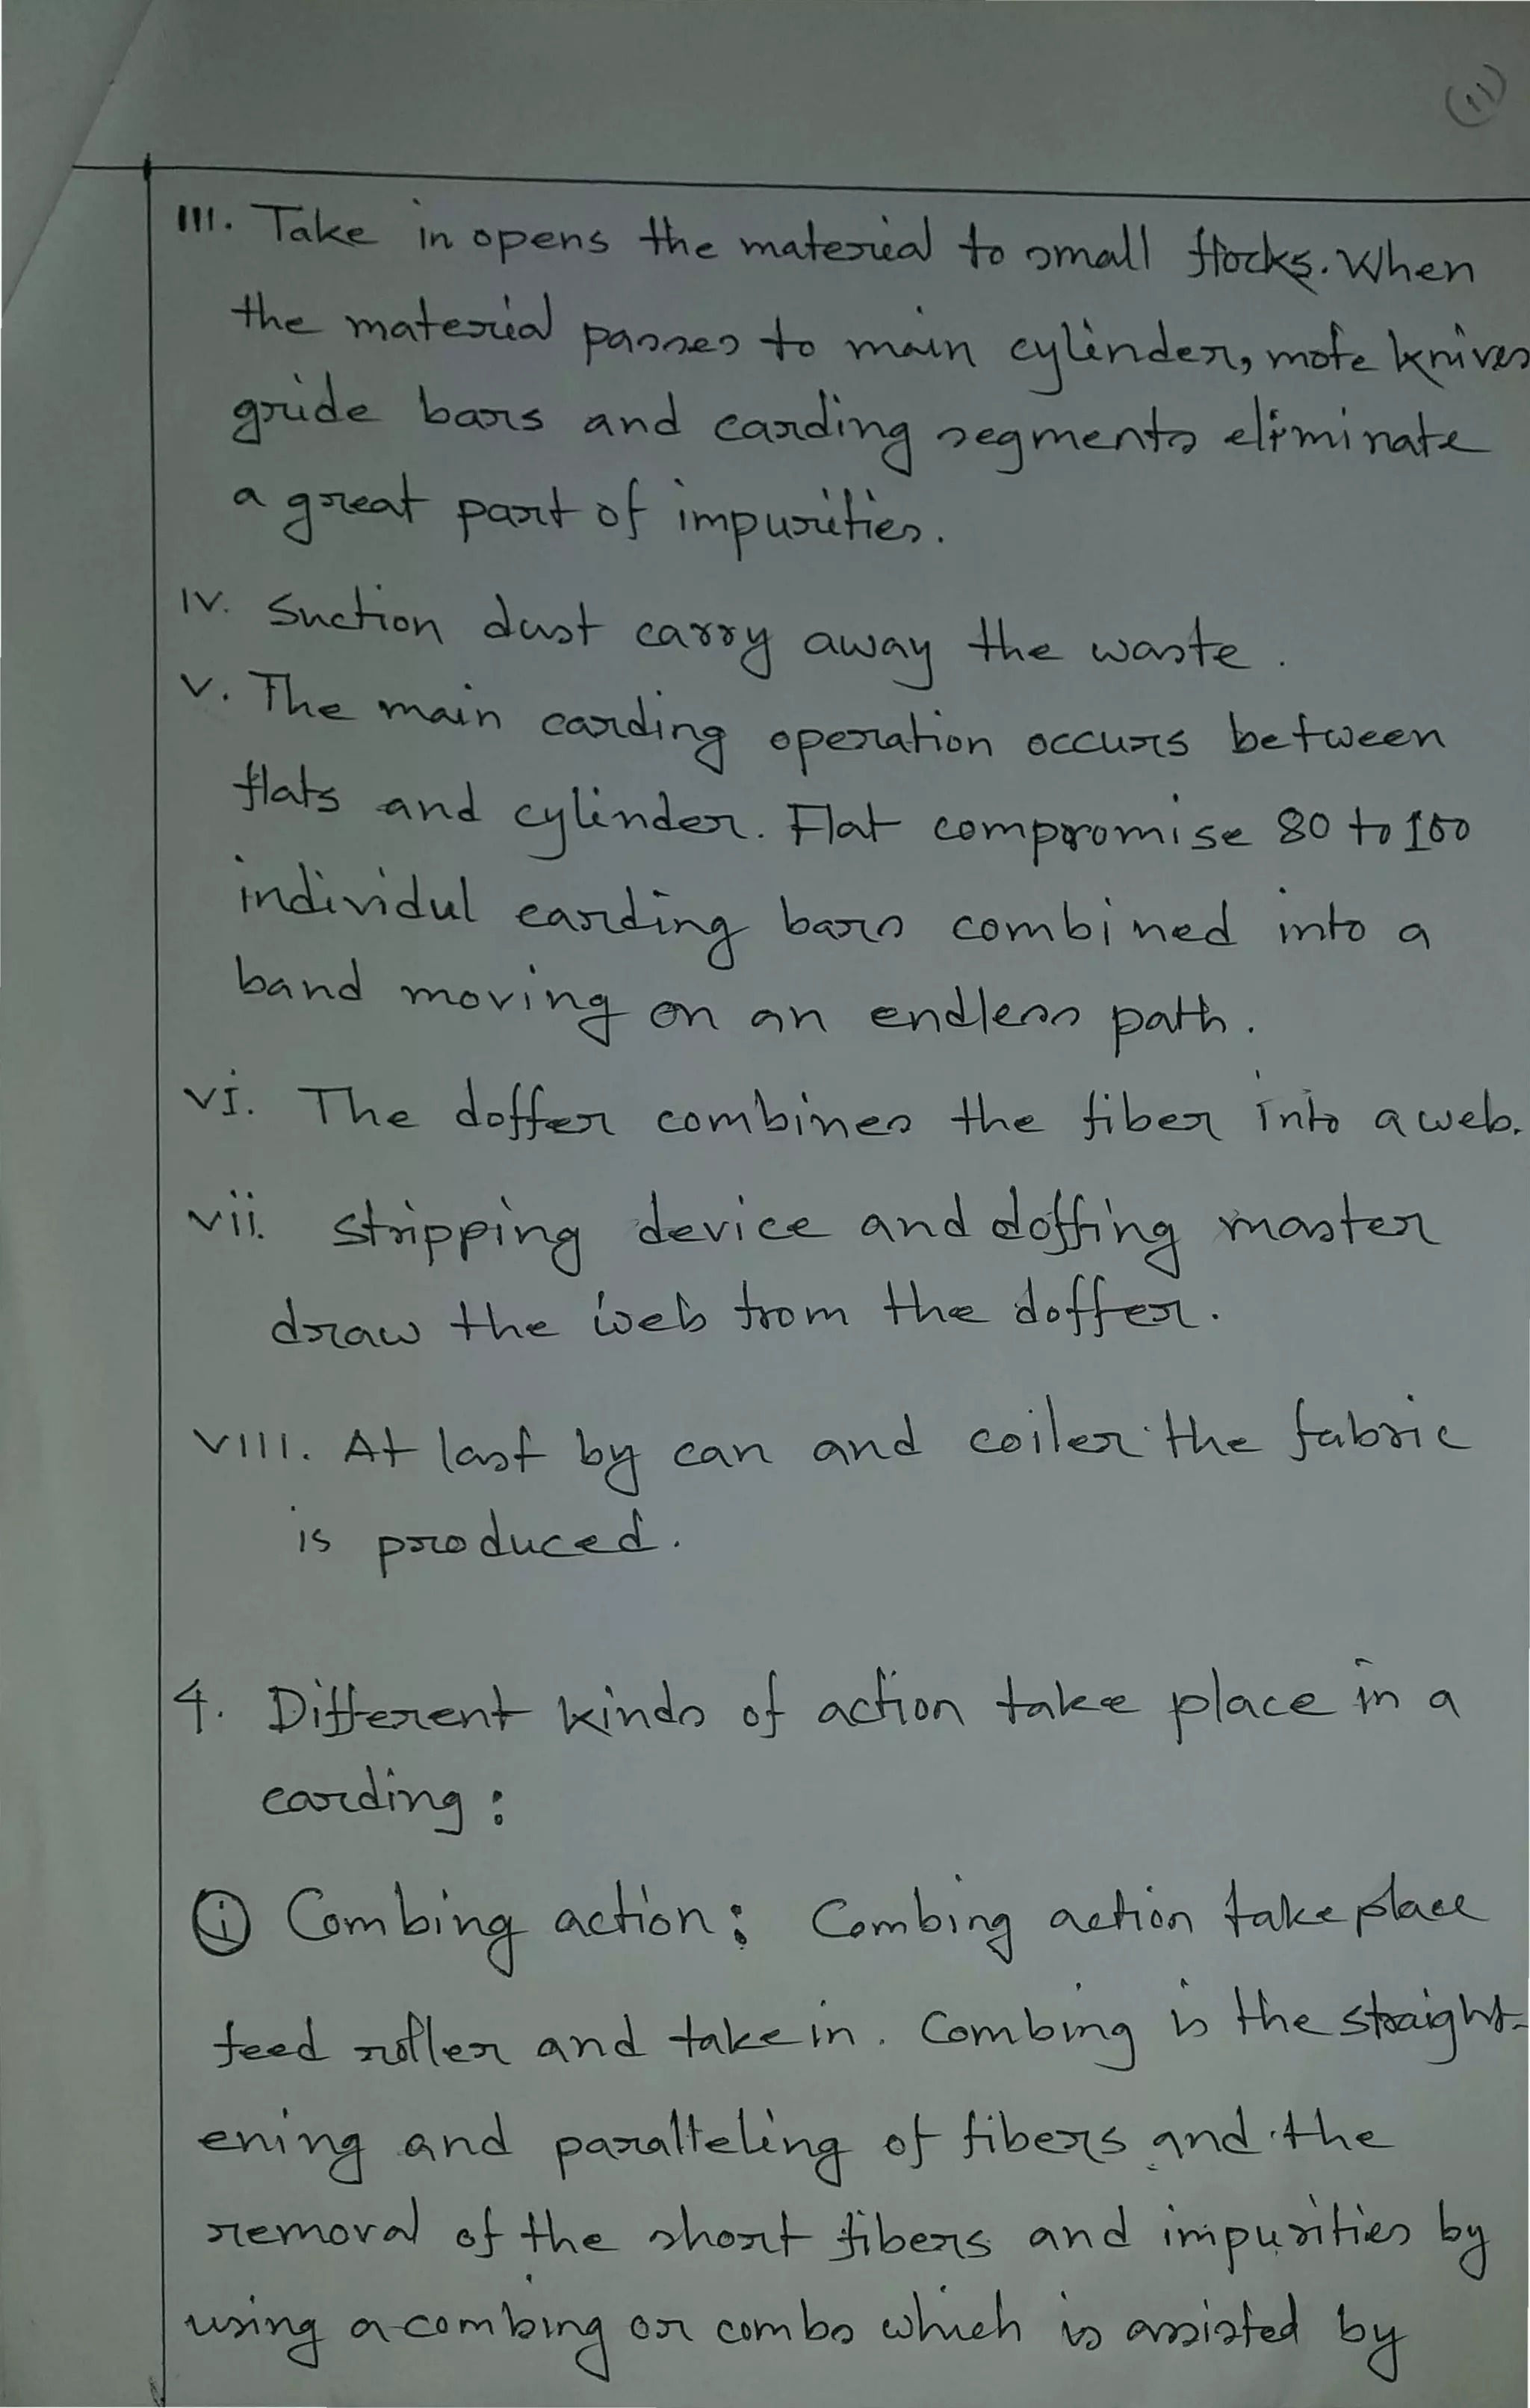 (11)
III. Take in opens the material to small flocks. When
the material passes to main cylinder, mote knives
gride bars and carding segments eliminate
a great part of impurities.
IV. Suction dust carry away the waste.
V. The main carding operation occurs between
flats and cylinder. Flat compromise 80 to 100
individul carding bars combined into a
band moving on an endless path.
VI. The doffer combines the fiber into a web.
vii. stripping device and doffing master
draw the web from the doffer.
VIII. At last by can and coiler the fabric
is produced.
4. Different kinds of action take place in a
carding:
(i) Combing action: Combing action take place
feed roller and take in. Combing is the straight-
ening and paralleling of fibers and the
removal of the short fibers and impurities by
using a combing or combs which is assisted by